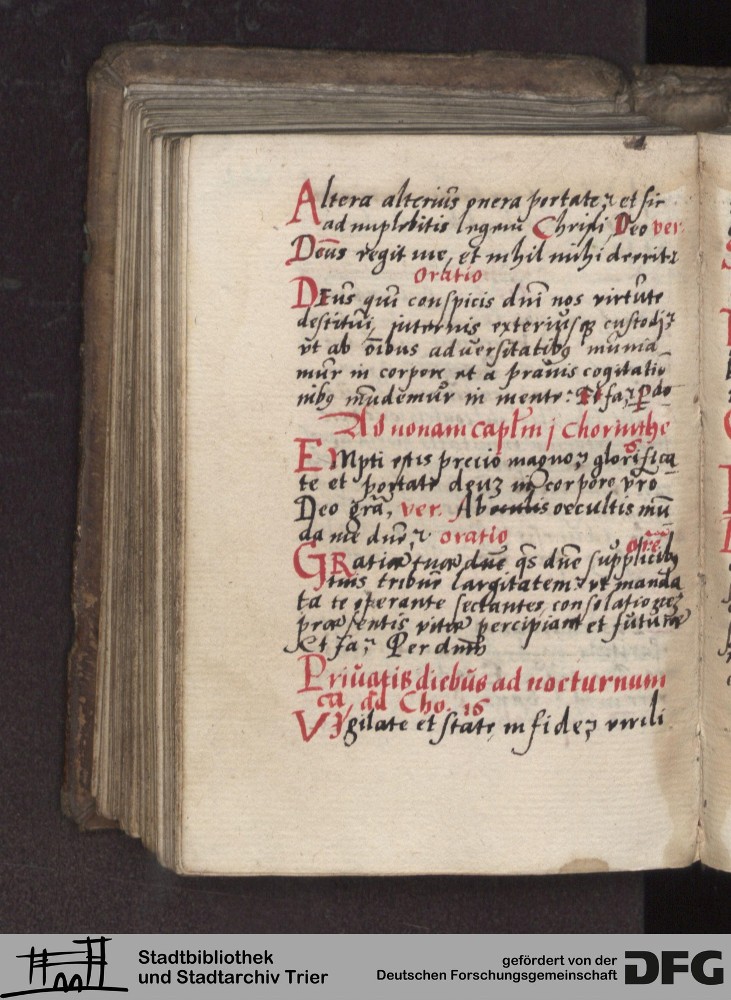 Altera alterius onera portate, et sic
adimplebitis legem Christi Deo ver
Deus regit me, et nihil mihi deerit
oratio
DEus qui conspicis dni nos virtute
destitui, internis exteriusq custodi
ut ab oibus adversitatibus munia
mur in corpore et a pravis cogitatio
nibus mundemur in mente: Et fa, P do
Ad nonam captm j Chorinthe
EMpti estis precio magno, glorifica
te et portate deum in corpore vro
Deo gra, ver. Ab occultis mun
da me dne, oratio
GRatiae tuae dne qs dne supplicibus
tuis tribue largitatem, ut manda
ta te operante sectantes, consolationes
praesentis vitae percipiant et futurae
Et fa, Per dnm
Privatis diebus ad nocturnum
ca, ad Cho. 16
VIgilate et state in fide, virili
Stadtbibliothek
und Stadtarchiv Trier
gefördert von der
Deutschen Forschungsgemeinschaft
DFG